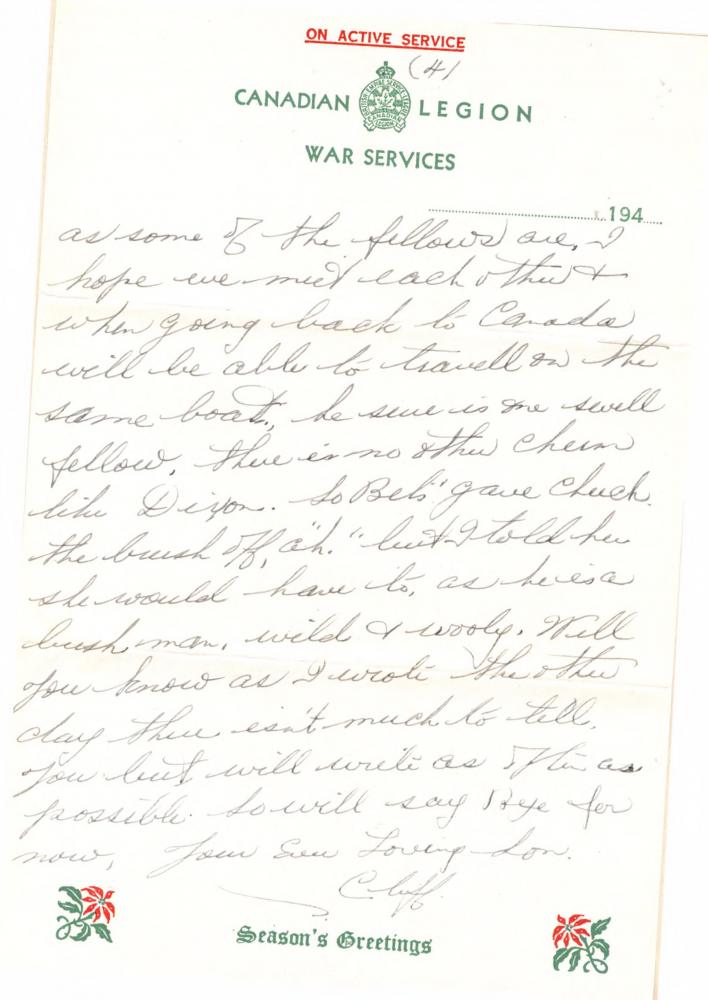 ON ACTIVE SERVICE
(4)
CANADIAN LEGION
WAR SERVICES
194
as some of the fellows are, I
hope we meet each other &
when going back to Canada
will be able to travell on the
same boat, he sure is one swell
fellow, there is no other chum
like Dixon. So Bets gave Chuck
the brush off, "eh." but I told her
she would have to, as he is a
bush man, wild & wooly. Well
you know as I wrote the other
day there isn't much to tell
you but will write as often as
possible. So will say Bye for
now, Your Ever Loving Son.
Cliff
Season's Greetings